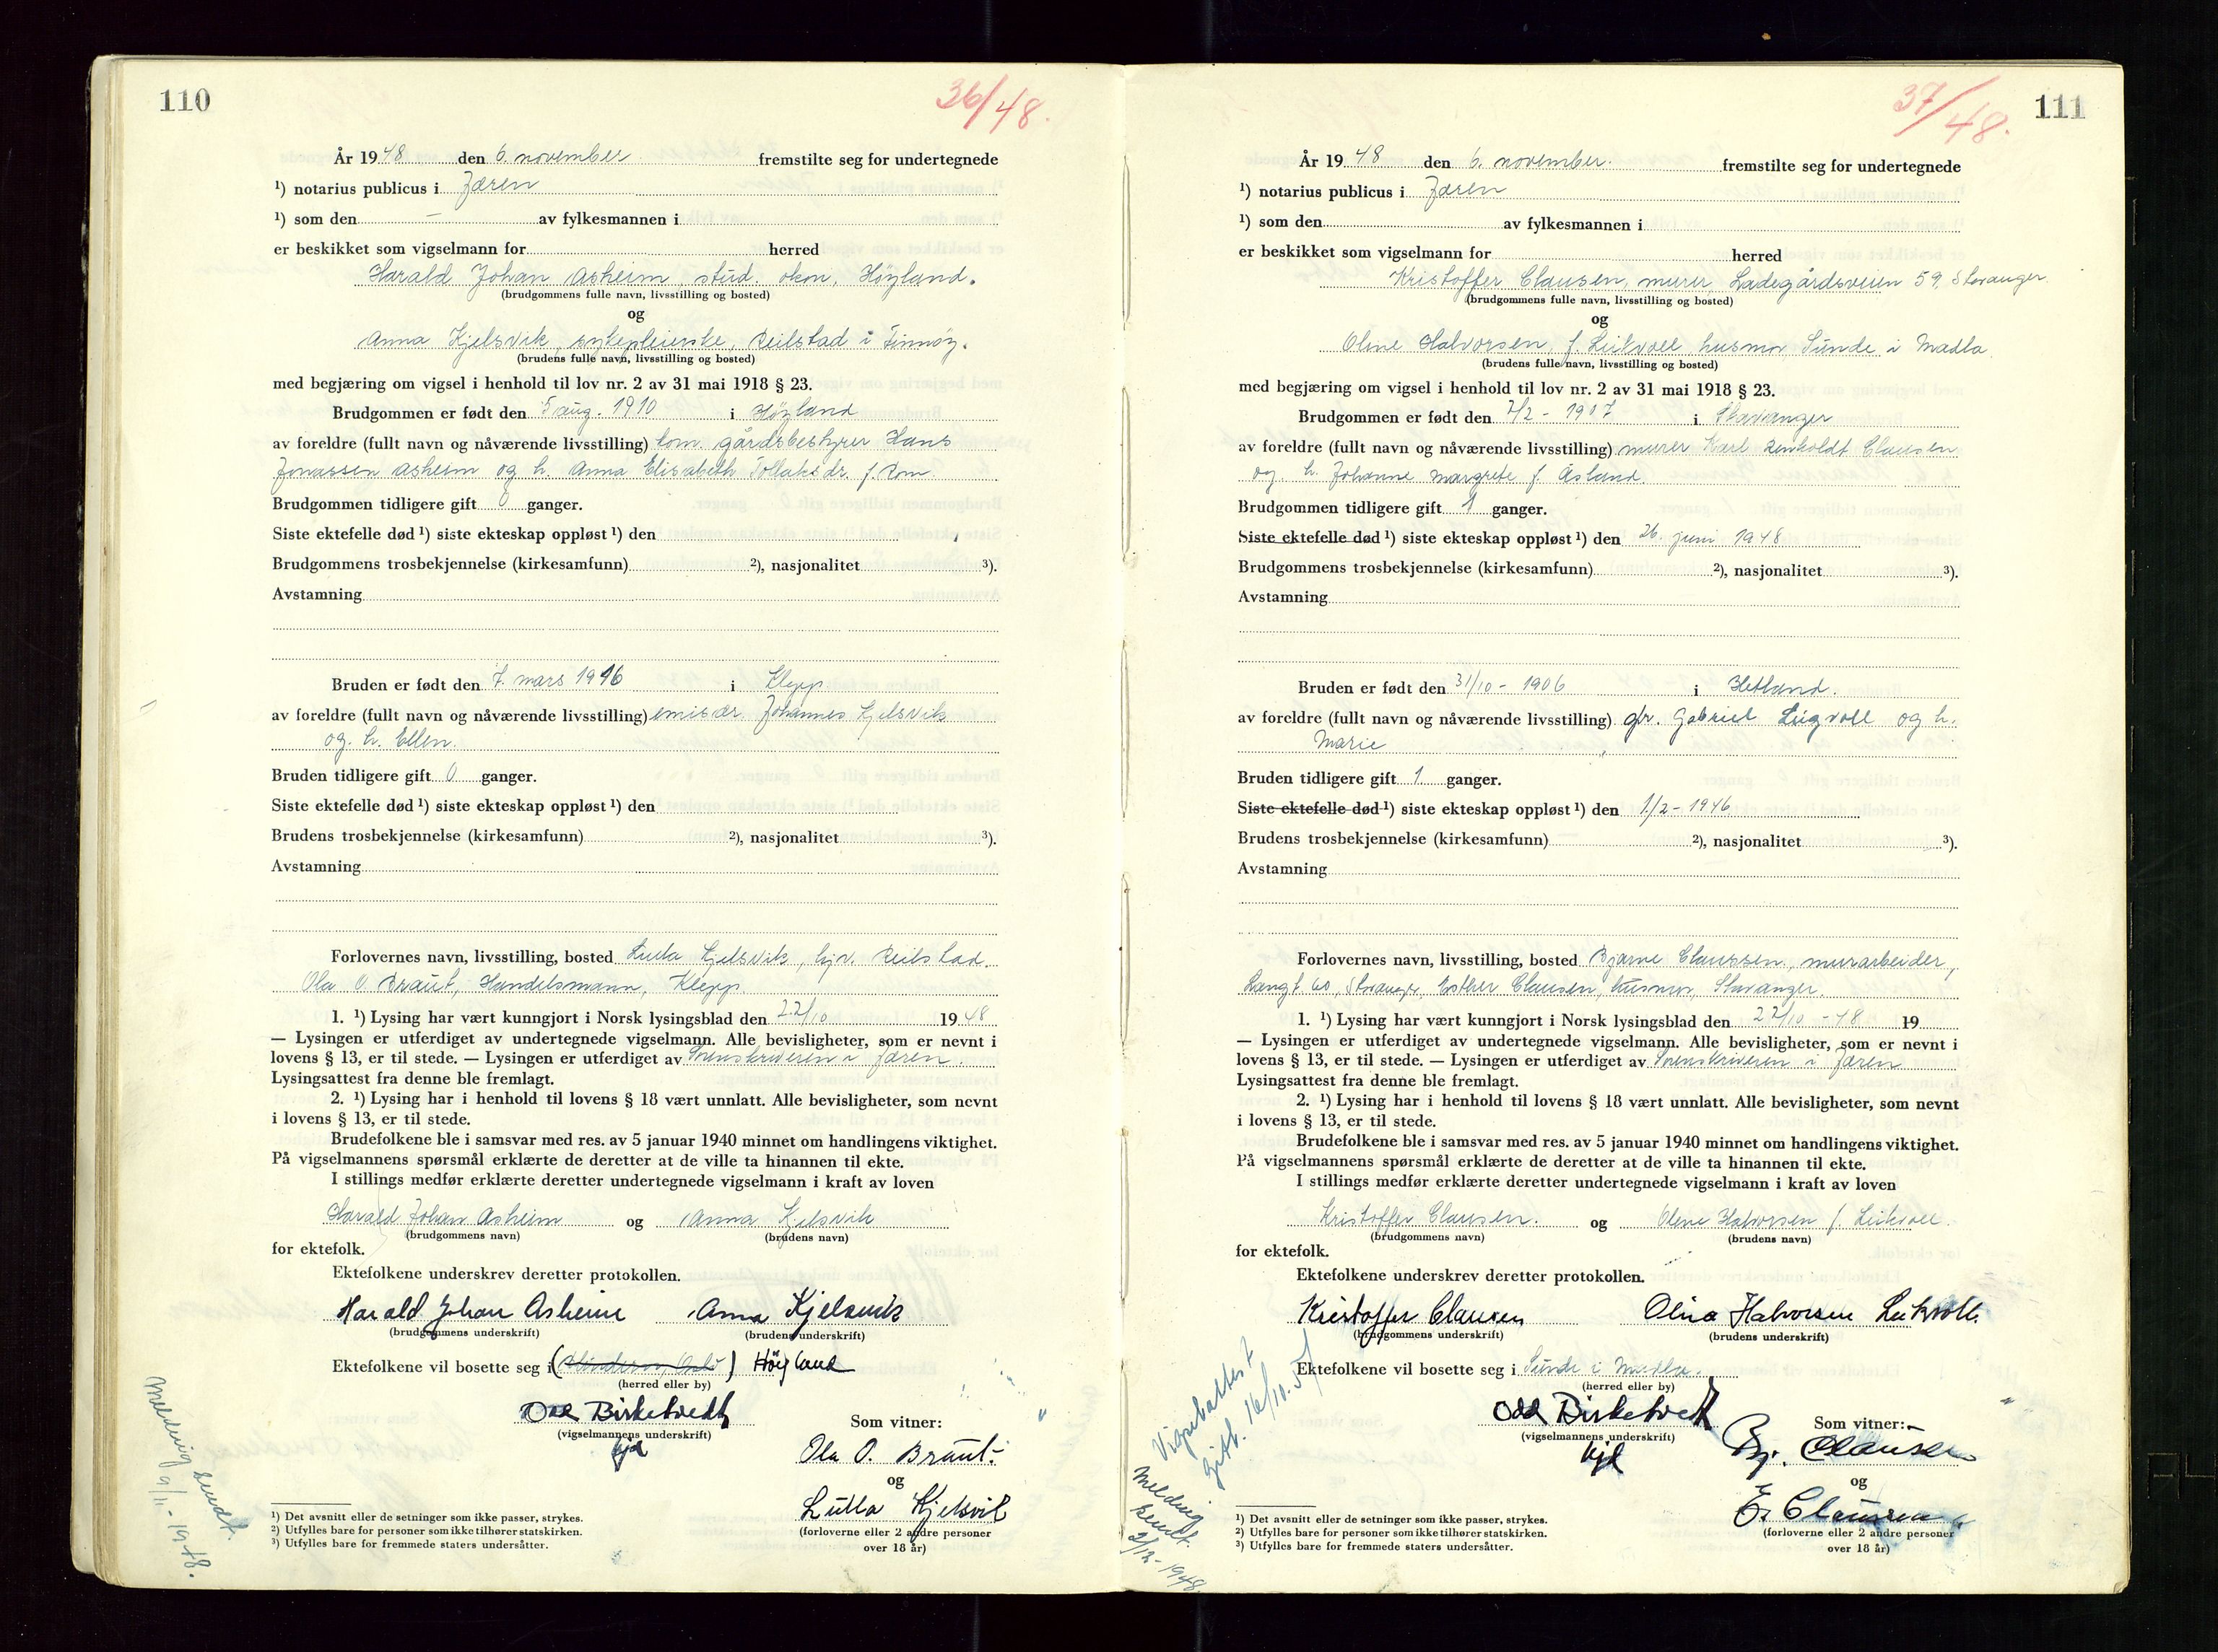 110
36/48.
År 1948 den 6. november fremstilte seg for undertegnede
¹) notarius publicus i Jæren
¹) som den – av fylkesmannen i
er beskikket som vigselmann for herred
Harald Johan Asheim, stud. okon, Höyland.
(brudgommens fulle navn, livsstilling og bosted)
og
Anna Kjelsvik, sykepleierske, Reilstad i Finnöy.
(brudens fulle navn, livsstilling og bosted)
med begjæring om vigsel i henhold til lov nr. 2 av 31 mai 1918 § 23.
Brudgommen er født den 5 aug. 1910 i Höyland
av foreldre (fullt navn og nåværende livsstilling) kom. gårdsbestyrer Hans
Jonassen Asheim og h. Anna Elisabeth Tollaksdr. f. Rom.
Brudgommen tidligere gift 0 ganger.
Siste ektefelle død ¹) siste ekteskap oppløst ¹) den
Brudgommens trosbekjennelse (kirkesamfunn) ²), nasjonalitet ³).
Avstamning
Bruden er født den 7. mars 1916 i Klepp
av foreldre (fullt navn og nåværende livsstilling) emisær Johannes Kjelsvik
og h. Ellen.
Bruden tidligere gift 0 ganger.
Siste ektefelle død ¹) siste ekteskap oppløst ¹) den
Brudens trosbekjennelse (kirkesamfunn) ²), nasjonalitet ³).
Avstamning
Forlovernes navn, livsstilling, bosted Lulla Kjelsvik, hjv. Reilstad.
Ola O. Braut, Handelsmann, Klepp.
1. ¹) Lysing har vært kunngjort i Norsk lysingsblad den 22/10 1948
— Lysingen er utferdiget av undertegnede vigselmann. Alle bevisligheter, som er nevnt i
lovens § 13, er til stede. — Lysingen er utferdiget av Sorenskriveren i Jæren.
Lysingsattest fra denne ble fremlagt.
2. ¹) Lysing har i henhold til lovens § 18 vært unnlatt. Alle bevisligheter, som nevnt
i lovens § 13, er til stede.
Brudefolkene ble i samsvar med res. av 5 januar 1940 minnet om handlingens viktighet.
På vigselmannens spørsmål erklærte de deretter at de ville ta hinannen til ekte.
I stillings medfør erklærte deretter undertegnede vigselmann i kraft av loven
Harald Johan Asheim og Anna Kjelsvik
(brudgommens navn) (brudens navn)
for ektefolk.
Ektefolkene underskrev deretter protokollen.
Harald Johan Asheim Anna Kjelsvik
(brudgommens underskrift) (brudens underskrift)
Ektefolkene vil bosette seg i ( ) Höyland
(herred eller by)
Odd Birketvedt
(vigselmannens underskrift)
hjd
Som vitner:
Ola O. Braut.
og
Lulla Kjelsvik
(forloverne eller 2 andre personer
over 18 år)
¹) Det avsnitt eller de setninger som ikke passer, strykes.
²) Utfylles bare for personer som ikke tilhører statskirken.
³) Utfylles bare for fremmede staters undersåtter.
Melding sendt.
9/11-1948.
37/48.
111
År 1948 den 6. november. fremstilte seg for undertegnede
¹) notarius publicus i Jæren
¹) som den av fylkesmannen i
er beskikket som vigselmann for herred
Kristoffer Clausen, murer, Ladegårdsveien 59, Stavanger.
(brudgommens fulle navn, livsstilling og bosted)
og
Oline Halvorsen, f. Leikvoll husmor Sunde i Madla
(brudens fulle navn, livsstilling og bosted)
med begjæring om vigsel i henhold til lov nr. 2 av 31 mai 1918 § 23.
Brudgommen er født den 7/2 - 1907 i Stavanger
av foreldre (fullt navn og nåværende livsstilling) murer Karl Renholdt Clausen
og h. Johanne Margrete f. Åsland.
Brudgommen tidligere gift 1 ganger.
Siste ektefelle død ¹) siste ekteskap oppløst ¹) den 26. juni 1948
Brudgommens trosbekjennelse (kirkesamfunn) ²), nasjonalitet ³).
Avstamning
Bruden er født den 31/10 - 1906 i Hetland.
av foreldre (fullt navn og nåværende livsstilling) gbr. Gabriel Leigvoll og h.
Marie
Bruden tidligere gift 1 ganger.
Siste ektefelle død ¹) siste ekteskap oppløst ¹) den 1/2 - 1946
Brudens trosbekjennelse (kirkesamfunn) ²), nasjonalitet ³).
Avstamning
Forlovernes navn, livsstilling, bosted Bjarne Claussen, murarbeider,
Langt. 60, Stavanger, Esther Clausen, husmor, Stavanger.
1. ¹) Lysing har vært kunngjort i Norsk lysingsblad den 22/10 - 48 19
— Lysingen er utferdiget av undertegnede vigselmann. Alle bevisligheter, som er nevnt i
lovens § 13, er til stede. — Lysingen er utferdiget av Sorenskriveren i Jæren
Lysingsattest fra denne ble fremlagt.
2. ¹) Lysing har i henhold til lovens § 18 vært unnlatt. Alle bevisligheter, som nevnt
i lovens § 13, er til stede.
Brudefolkene ble i samsvar med res. av 5 januar 1940 minnet om handlingens viktighet.
På vigselmannens spørsmål erklærte de deretter at de ville ta hinannen til ekte.
I stillings medfør erklærte deretter undertegnede vigselmann i kraft av loven
Kristoffer Clausen. og Oline Halvorsen f. Leikvoll.
(brudgommens navn) (brudens navn)
for ektefolk.
Ektefolkene underskrev deretter protokollen.
Kristoffer Clausen Olina Halvorsen Leikvoll.
(brudgommens underskrift) (brudens underskrift)
Ektefolkene vil bosette seg i Sunde i Madla.
(herred eller by)
Odd Birketvedt
(vigselmannens underskrift)
hjd
Som vitner:
Bj. Clausen
og
E. Claussen
(forloverne eller 2 andre personer
over 18 år)
¹) Det avsnitt eller de setninger som ikke passer, strykes.
²) Utfylles bare for personer som ikke tilhører statskirken.
³) Utfylles bare for fremmede staters undersåtter.
Vigselattest
16/10.57
Melding
sendt
2/12-1948.